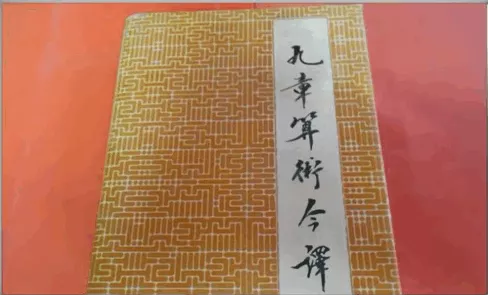 九章算術今譯